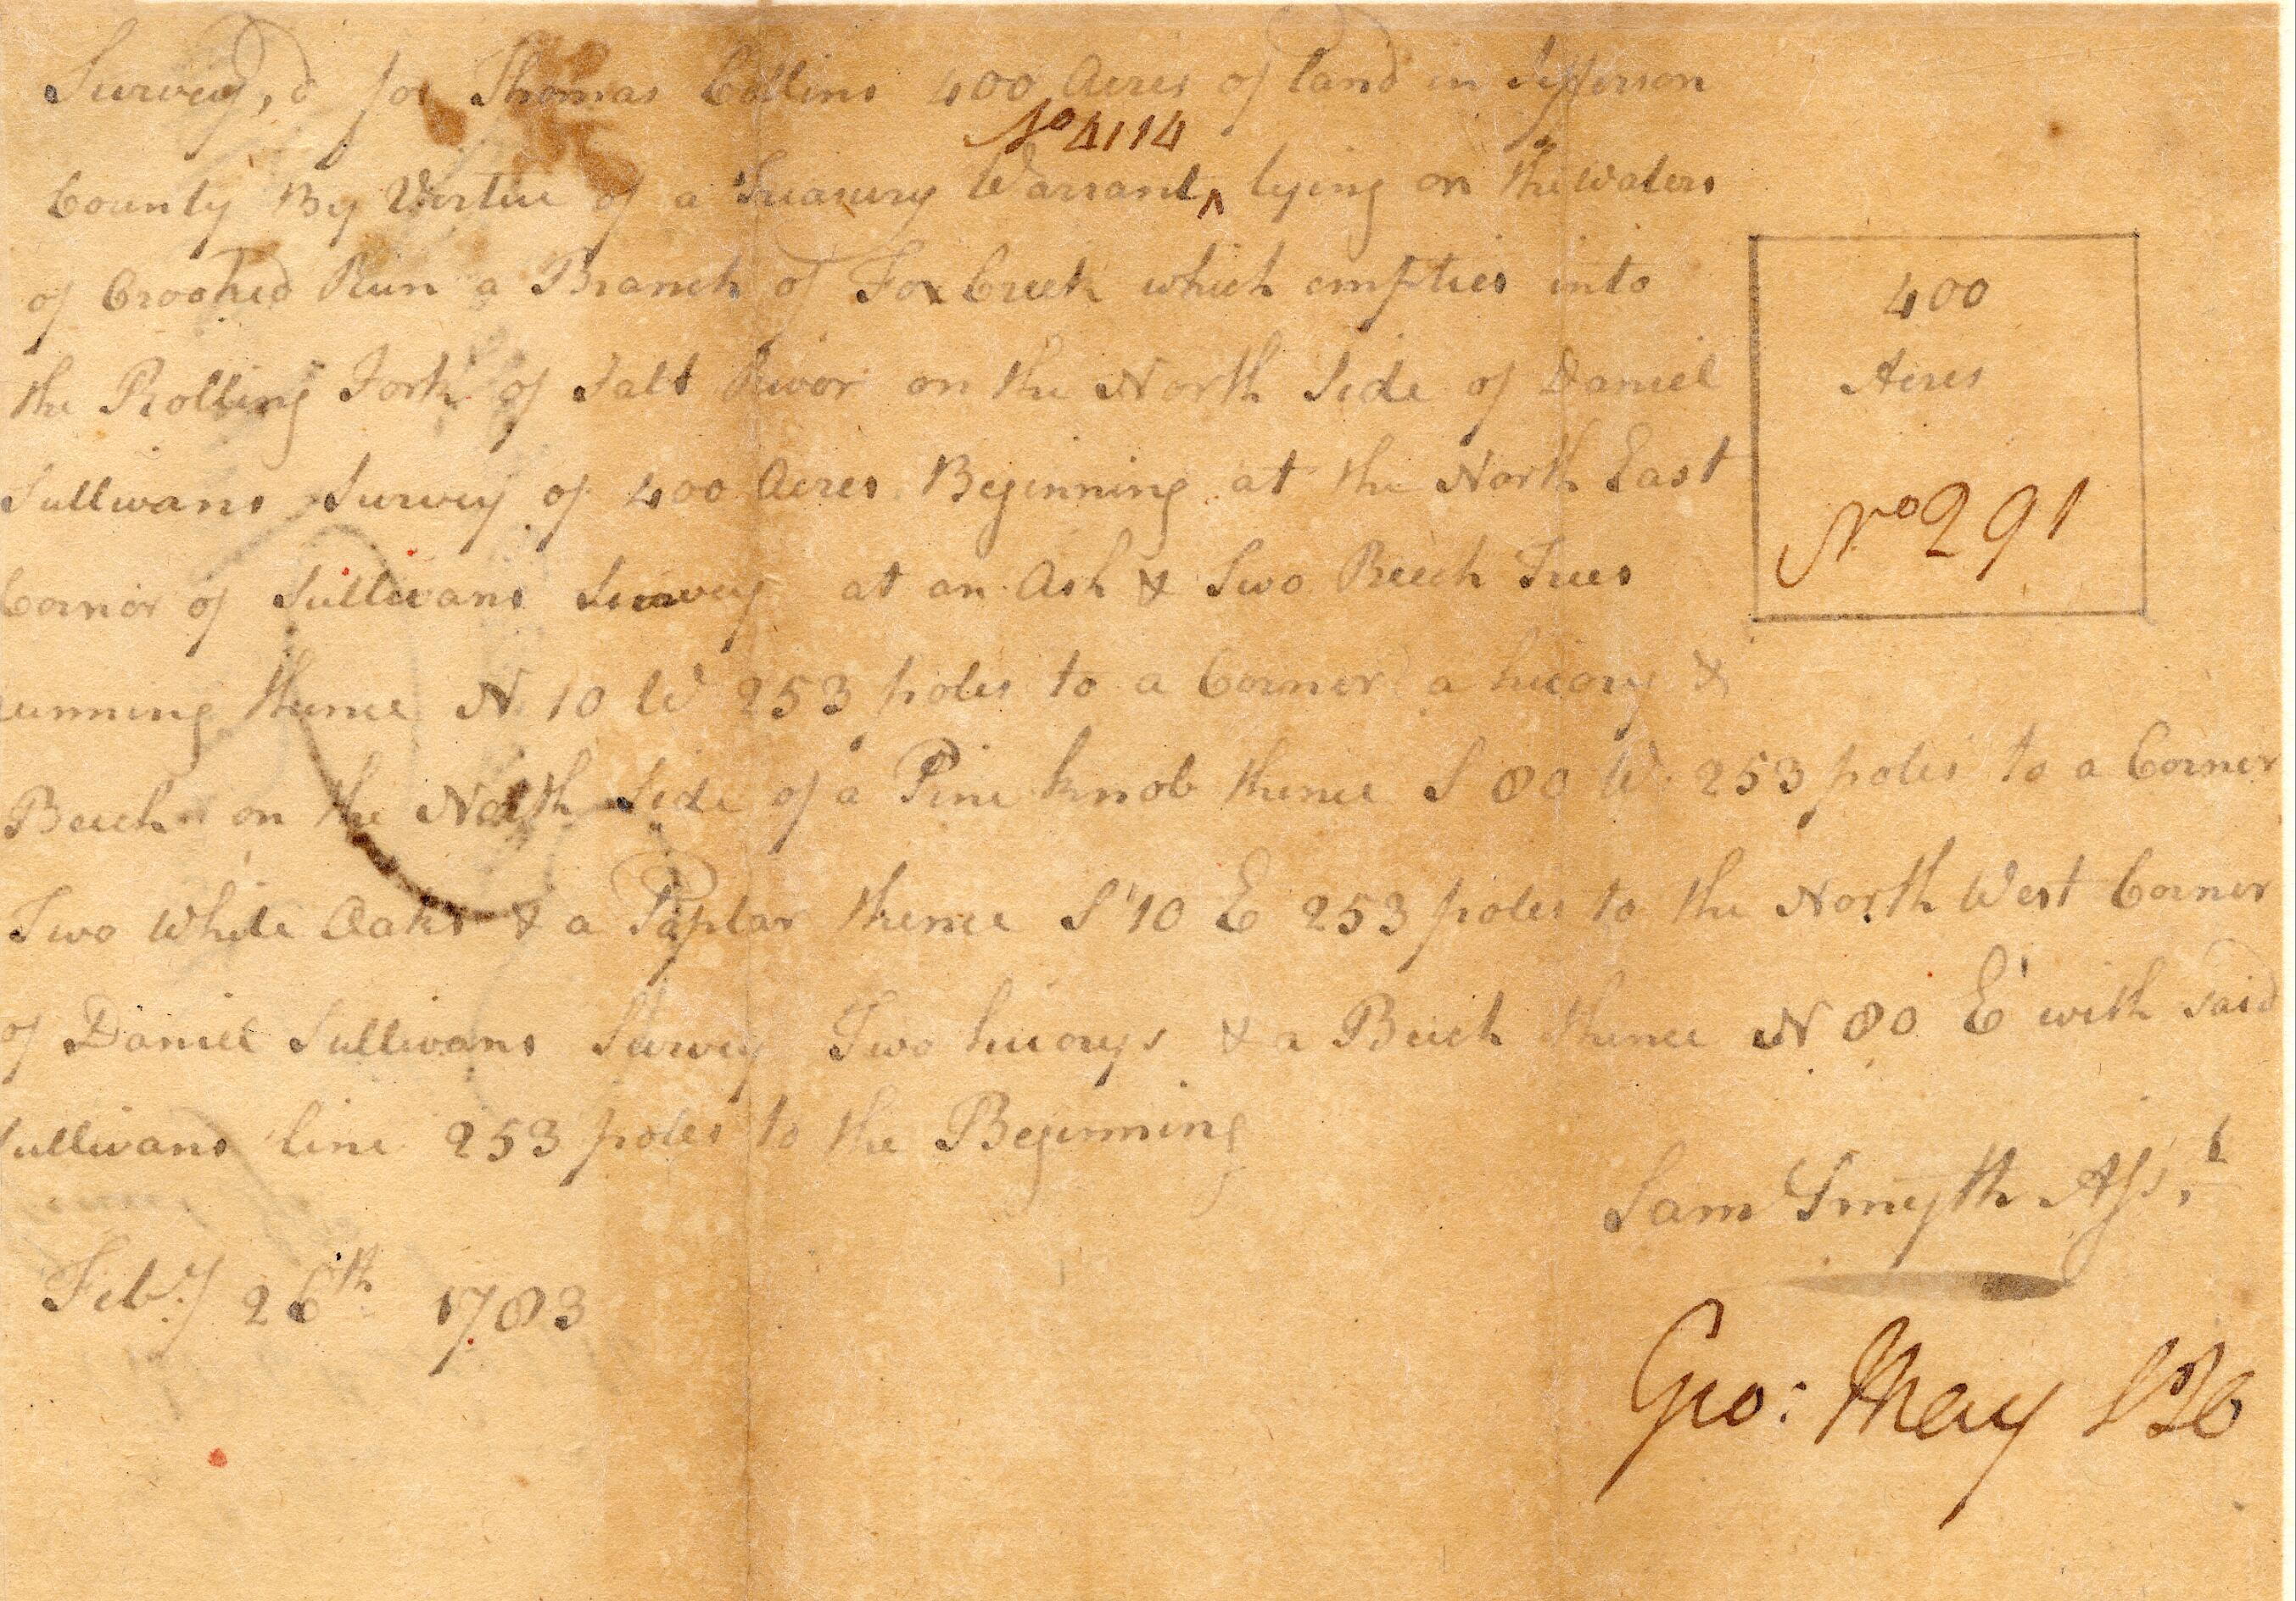 Survey,d for Thomas Collins 400 Acres of land in Jefferson
No 4114
County By Virtue of a Treasury Warrant ^ lying on the Waters
of Crooked Run a Branch of Fox Creek which empties into
the Rolling Fork of Salt River on the North Side of Daniel
Sullivans Survey of 400 Acres Beginning at the North East
Cornor of Sullivans Survey at an Ash & Two Beech Trees
running thence N 10 W 253 poles to a Corner a hicory &
Beech on the North Side of a Pine knob thence S 80 W 253 poles to a Corner
Two White Oaks & a Paplar thence S 10 E 253 poles to the North West Corner
of Daniel Sullivans Survey Two hicorys & a Beech thence N 80 E with Said
Sullivans line 253 poles to the Beginning
Sam Smyth Asst
Feby 26th 1783
Geo: May
400
Acres
No 291